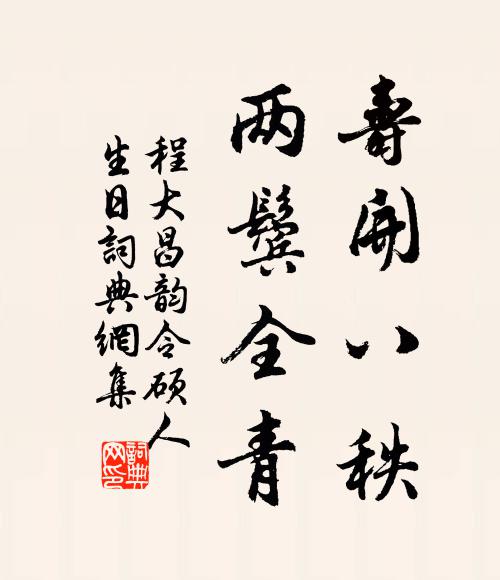 壽開八秩
两鬓全青
程大昌韵令碩人
生日詞典網集
詞典网印